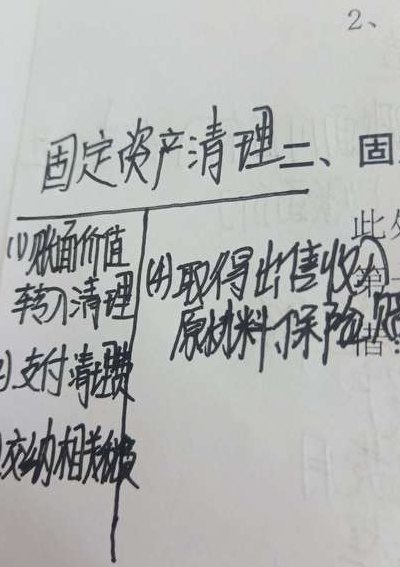 2、
固定资产清理
二、固
(1)账面价值
转入清理
)支付清理费
)交纳相关税费
(4)取得出售收入
原材料、保险赔
此处
第一
借: